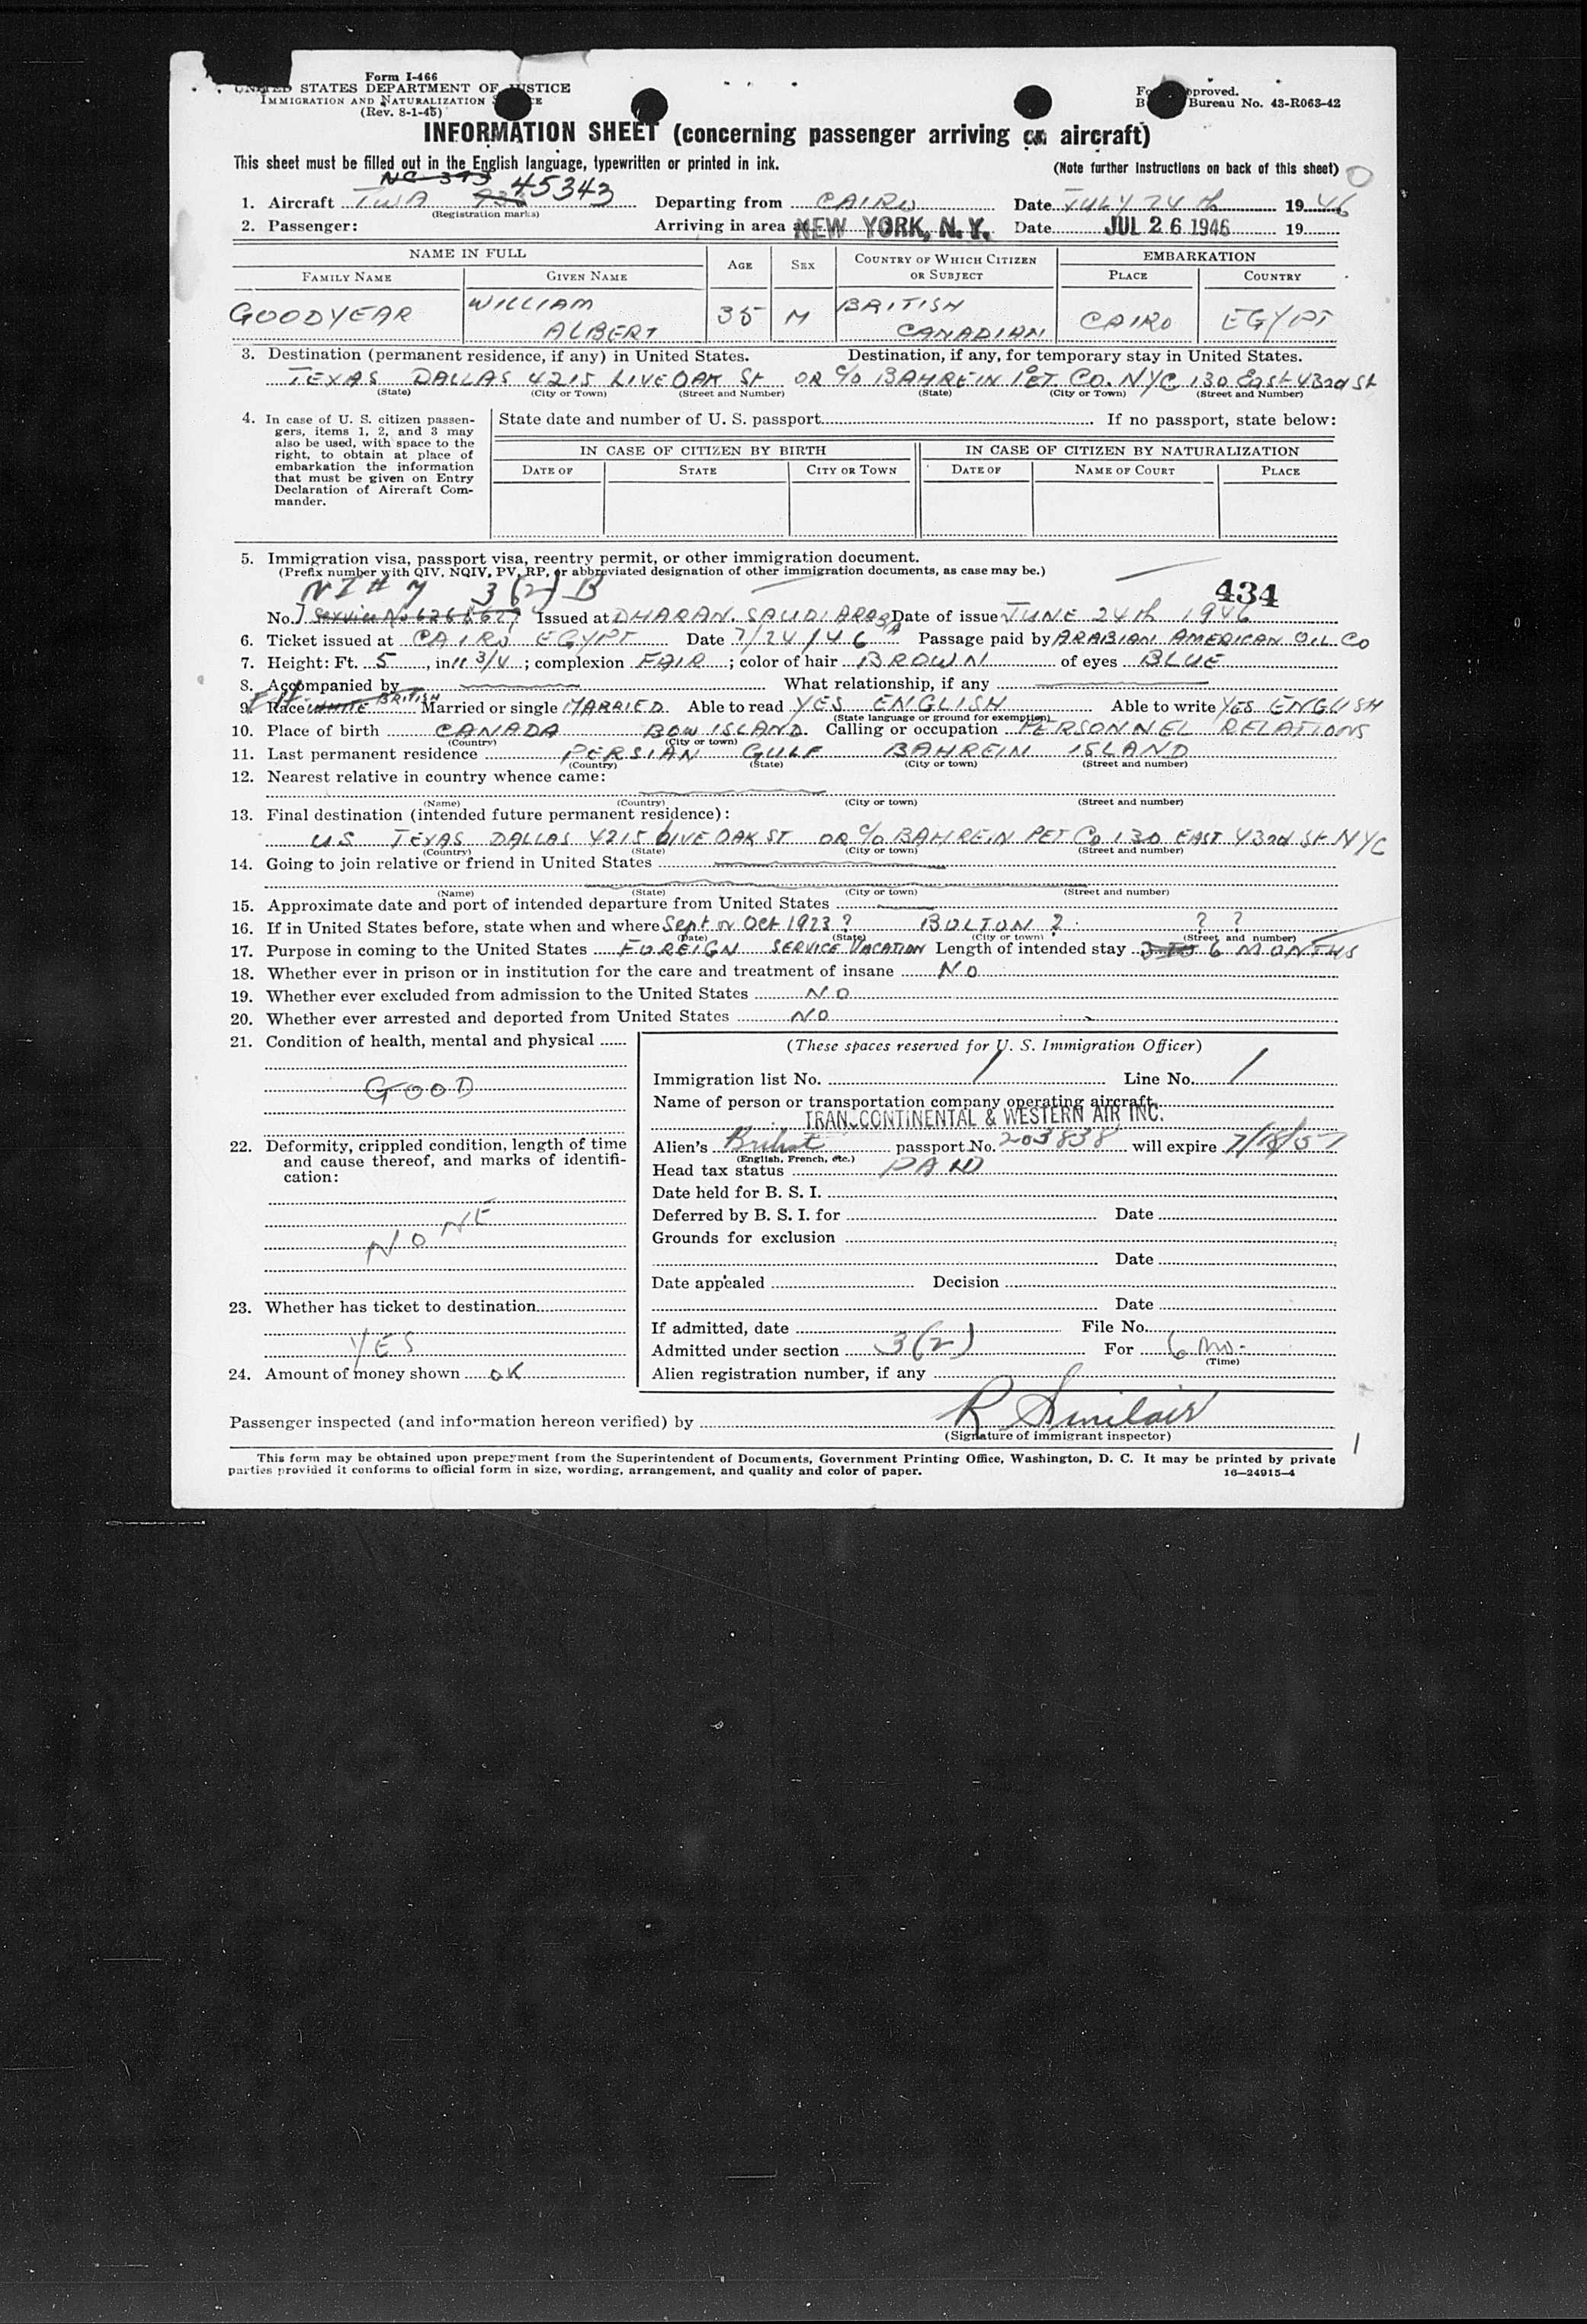 Form I-466
UNITED STATES DEPARTMENT OF JUSTICE
IMMIGRATION AND NATURALIZATION SERVICE
(Rev. 8-1-45)
Form approved.
Bureau No. 43-R063-42
INFORMATION SHEET (concerning passenger arriving on aircraft)
This sheet must be filled out in the English language, typewritten or printed in ink.
(Note further instructions on back of this sheet)
1. Aircraft TWA 45343 Departing from CAIRO Date JULY 24th 1946
(Registration marks)
2. Passenger: Arriving in area at NEW YORK, N.Y. Date JUL 26 1946 19
NAME IN FULL AGE SEX COUNTRY OF WHICH CITIZEN OR SUBJECT EMBARKATION
FAMILY NAME GIVEN NAME PLACE COUNTRY
GOODYEAR WILLIAM ALBERT 35 M BRITISH CANADIAN CAIRO EGYPT
3. Destination (permanent residence, if any) in United States. Destination, if any, for temporary stay in United States.
TEXAS DALLAS 4215 LIVE OAK St OR C/O BAHREIN PET. CO. NYC 130 East 43rd St
(State) (City or Town) (Street and Number) (State) (City or Town) (Street and Number)
4. In case of U. S. citizen passen-
gers, items 1, 2, and 3 may
also be used, with space to the
right, to obtain at place of
embarkation the information
that must be given on Entry
Declaration of Aircraft Com-
mander.
State date and number of U. S. passport If no passport, state below:
IN CASE OF CITIZEN BY BIRTH IN CASE OF CITIZEN BY NATURALIZATION
DATE OF STATE CITY OR TOWN DATE OF NAME OF COURT PLACE
5. Immigration visa, passport visa, reentry permit, or other immigration document.
(Prefix number with QIV, NQIV, PV, RP, or abbreviated designation of other immigration documents, as case may be.)
NI # 7 3(2) B
434
No. Issued at DHARAN. SAUDI ARABIA Date of issue JUNE 24th 1946
6. Ticket issued at CAIRO EGYPT Date 7/24/46 Passage paid by ARABIAN AMERICAN OIL CO
7. Height: Ft. 5, in 11 3/4; complexion FAIR; color of hair BROWN of eyes BLUE
8. Accompanied by What relationship, if any
9. Race WHITE BRITISH Married or single MARRIED. Able to read YES ENGLISH Able to write YES ENGLISH
(State language or ground for exemption)
10. Place of birth CANADA BOW ISLAND. Calling or occupation PERSONNEL RELATIONS
(Country) (City or town)
11. Last permanent residence PERSIAN GULF BAHREIN ISLAND
(Country) (State) (City or town) (Street and number)
12. Nearest relative in country whence came:
(Name) (Country) (City or town) (Street and number)
13. Final destination (intended future permanent residence):
US TEXAS DALLAS 4215 LIVE OAK ST OR C/O BAHREIN PET CO 130 EAST 43rd St NYC
(Country) (State) (City or town) (Street and number)
14. Going to join relative or friend in United States
(Name) (State) (City or town) (Street and number)
15. Approximate date and port of intended departure from United States
16. If in United States before, state when and where Sept or Oct 1923 ? BOLTON ? ? ?
(Date) (State) (City or town) (Street and number)
17. Purpose in coming to the United States FOREIGN SERVICE VACATION Length of intended stay 6 MONTHS
18. Whether ever in prison or in institution for the care and treatment of insane NO
19. Whether ever excluded from admission to the United States NO
20. Whether ever arrested and deported from United States NO
21. Condition of health, mental and physical
GOOD
22. Deformity, crippled condition, length of time
and cause thereof, and marks of identifi-
cation:
NONE
23. Whether has ticket to destination
YES
24. Amount of money shown OK
(These spaces reserved for U. S. Immigration Officer)
Immigration list No. 1 Line No. 1
Name of person or transportation company operating aircraft
TRANSCONTINENTAL & WESTERN AIR INC.
Alien's passport No. 203838 will expire
(English, French, etc.)
Head tax status PAID
Date held for B. S. I.
Deferred by B. S. I. for Date
Grounds for exclusion
Date
Date appealed Decision
Date
If admitted, date File No.
Admitted under section 3(2) For 6 mo.
(Time)
Alien registration number, if any
Passenger inspected (and information hereon verified) by R Sinclair
(Signature of immigrant inspector)
1
This form may be obtained upon prepayment from the Superintendent of Documents, Government Printing Office, Washington, D. C. It may be printed by private
parties provided it conforms to official form in size, wording, arrangement, and quality and color of paper. 16—24915-4